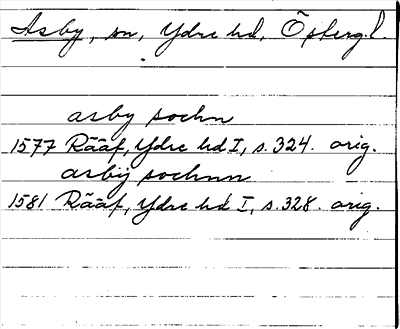 Asby, sn, Ydre hd, Östergl.
asby sochn
1577 Rääf, Ydre hd I, s. 324. orig.
asbÿ sochnn
1581 Rääf, Ydre hd I, s. 328. orig.